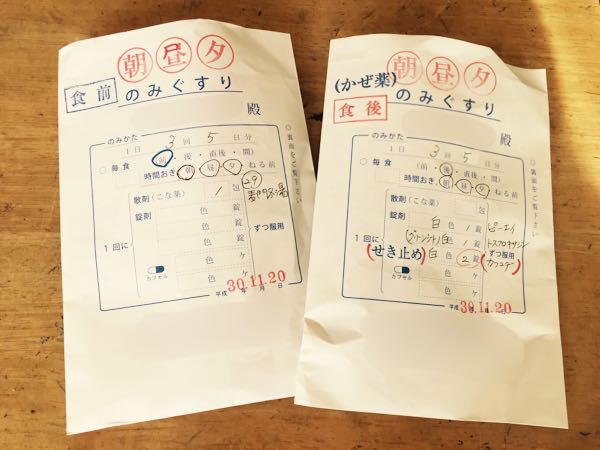 朝 昼 夕
食前 のみぐすり
殿
のみかた
1日 3回 5日分
○ 毎食 前・後・直後・間
時間おき 朝 昼 夕 ねる前
29
散剤(こな薬) 1 包
錠剤 色 錠
色 錠 ずつ服用
1回に 色 錠
色 ケ
カプセル 色 ケ
平成 年 月 日
30.11.20
○裏面をご覧下さい
朝 昼 夕
(かぜ薬)
食後 のみぐすり
殿
のみかた
1日 3回 5日分
○ 毎食 前・後・直後・間
時間おき 朝 昼 夕 ねる前
散剤(こな薬) 包
錠剤 白 色 1 錠 ピーエイ
白 色 1 錠 トスフロキサシン
ずつ服用
1回に (せき止め) 白 色 2 錠
色 ケ
カプセル 色 ケ
平成 年 月 日
30.11.20
○裏面をご覧下さい